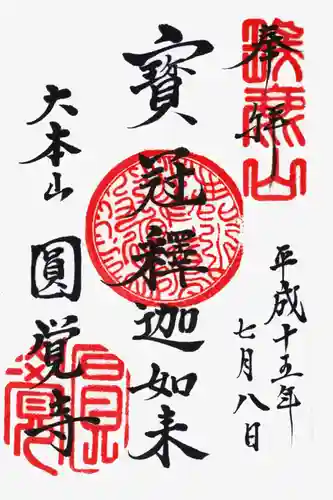 奉拝
平成十五年
七月八日
寳冠釋迦如来
大本山
圓覚寺